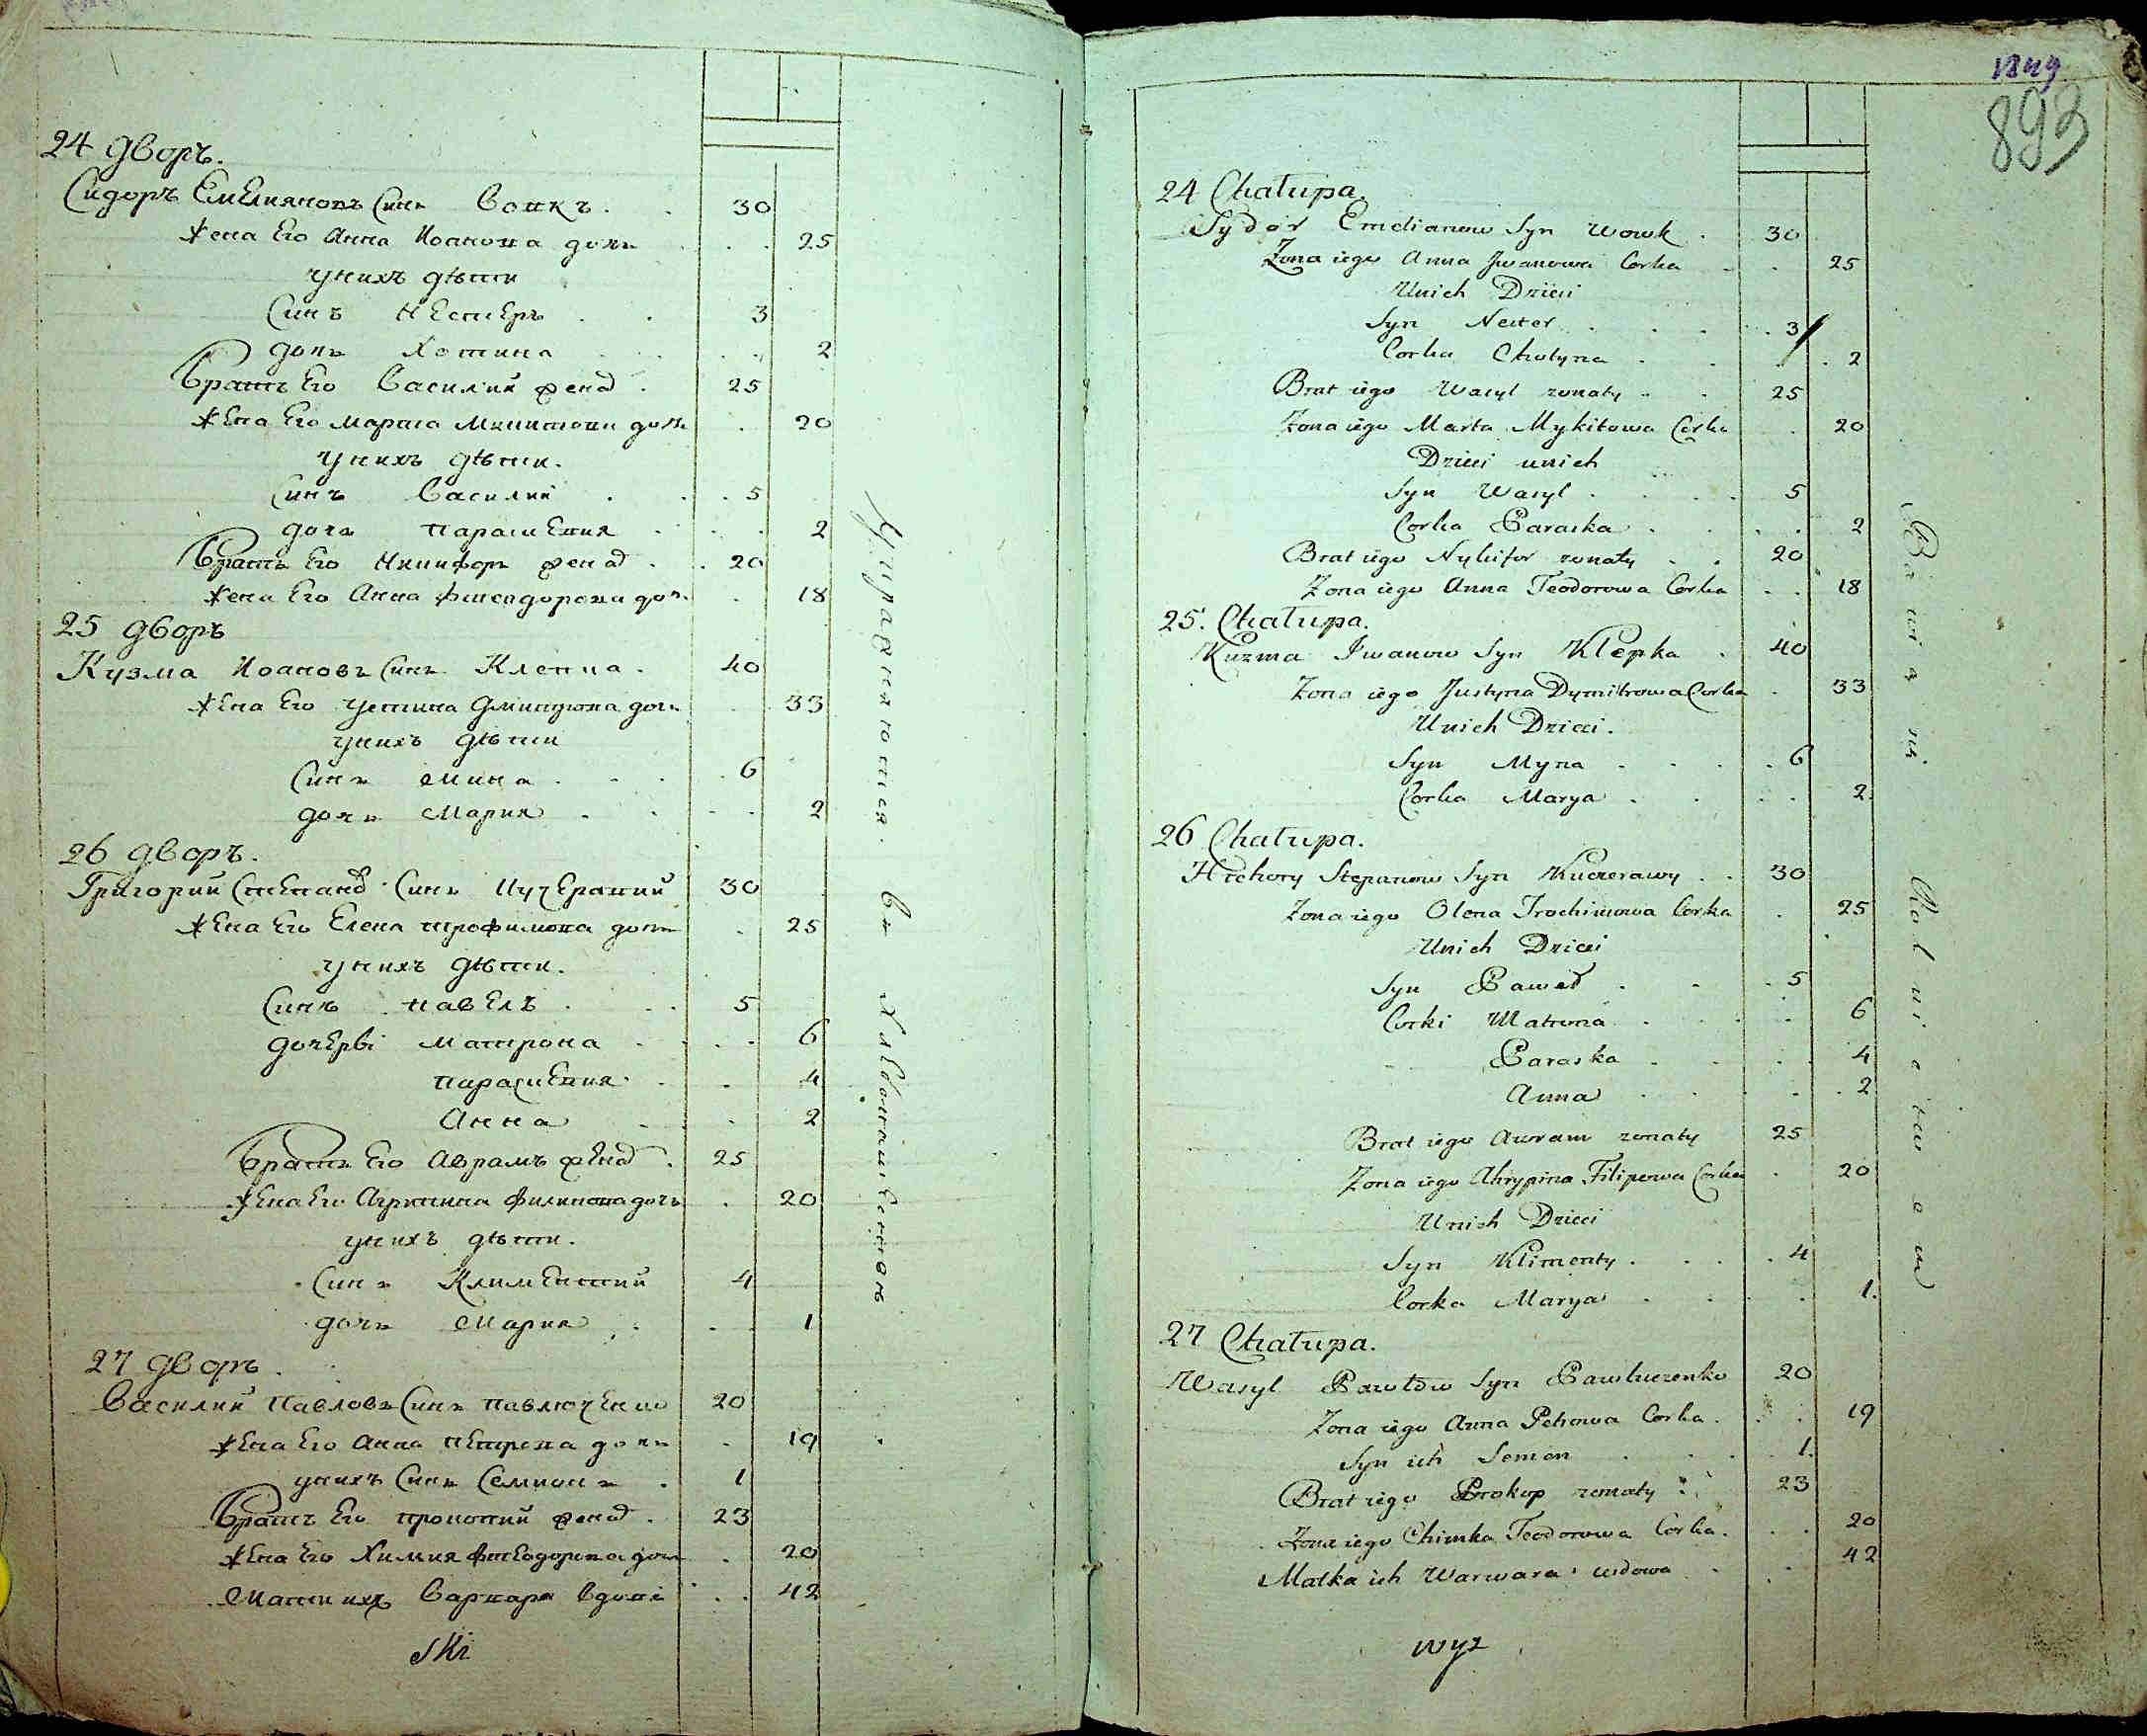 24 дворъ.
Сидоръ Емелияновъ Синъ Вовкъ . . 30
Жена Его Анна Иоанова дочь . . . 25
у нихъ дѣти
Синъ Нестеръ . . 3
дочь Хотина . . 2
Братъ Его Василий женад . 25
Жена Его Марта Микитова дочь . 20
у нихъ дѣти.
Синъ Василий . . . 5
дочь Параскевия . . . 2
Братъ Его Никифоръ женад . . . 20
Жена Его Анна Фтеодорова доч. . 18
25 дворъ
Кузма Иоановъ Синъ Клепка . 40
Жена Его Устина Дмитрова дочь . . 33
у нихъ дѣти
Синъ Мина . . . . 6
дочь Мария . . . . 2
26 дворъ.
Григорий Степанов Синъ Кучеравий 30
Жена Его Елена Трофимова дочь . 25
у нихъ дѣти.
Синъ Павелъ . . . 5
дочерѣ Матрона . . . . 6
Параскевия . . 4
Анна . . 2
Братъ Его Аврамъ женад . 25
Жена Его Агрипина Филипова дочь . 20
у нихъ дѣти.
Синъ Климентий 4
дочь Мария . . . 1
27 дворъ.
Василий Павловъ Синъ Павлюченко 20
Жена Его Анна Петрова дочь . 19
у нихъ Синъ Семионъ . 1
Братъ Его Прокопий женад . 23
Жена Его Химия Фтеодорова дочь . 20
Мати ихъ Варвара вдова . . 42
Ski
Упражняются въ Хлебопашестве
1849
893
24 Chałupa.
Sydor Emelianow Syn Wowk . 30
Zona iego Anna Jwanowa Corka . . 25
Unich Dzieci
Syn Nester . . . . 3
Corka Chotyna . . . . 2
Brat iego Wasyl zonaty . . 25
Zona iego Marta Mykitowa Corka . 20
Dzieci unich
Syn Wasyl . . . . 5
Corka Paraska . . . . 2
Brat iego Nykifor zonaty . . 20
Zona iego Anna Teodorowa Corka . . 18
25. Chałupa.
Kuzma Iwanow Syn Klepka . 40
Zona iego Justyna Dymitrowa Corka . 33
Unich Dzieci.
Syn Myna . . . . 6
Corka Marya . . . . 2
26 Chałupa.
Hrehory Stepanow Syn Kuczerawy . . 30
Zona iego Olena Trochimowa Corka . 25
Unich Dzieci
Syn Paweł . . . 5
Corki Matrona . . . . 6
Paraska . . . . 4
Anna . . . . 2
Brat iego Awram zonaty 25
Zona iego Ahrypina Filipowa Corka . 20
Unich Dzieci
Syn Klimenty . . . . 4
Corka Marya . . . . 1.
27 Chałupa.
Wasyl Pawłow Syn Pawluczenko 20
Zona iego Anna Petrowa Corka . . . 19
Syn ich Semen . . . 1.
Brat iego Prokop zonaty . . 23
Zona iego Chimka Teodorowa Corka . . . 20
Matka ich Warwara wdowa . . 42
wyz
Bawią się Rolnictwem